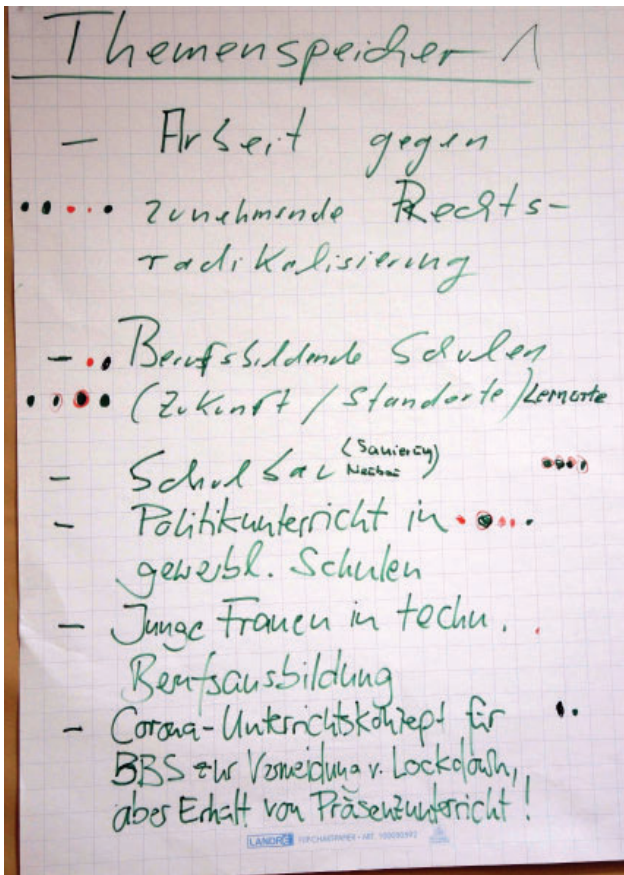 Themenspeicher 1
- Arbeit gegen
zunehmende Rechts-
radikalisierung
- Berufsbildende Schulen
(Zukunft / Standorte) Lernorte
- Schulbau (Sanierung)
Neubau
- Politikunterricht in
gewerbl. Schulen
- Junge Frauen in techn.
Berufsausbildung
- Corona-Unterrichtskonzept für
BBS zur Vermeidung v. Lockdown,
aber Erhalt von Präsenzunterricht!
LANDRÉ FLIPCHARTPAPIER · ART. 100050592